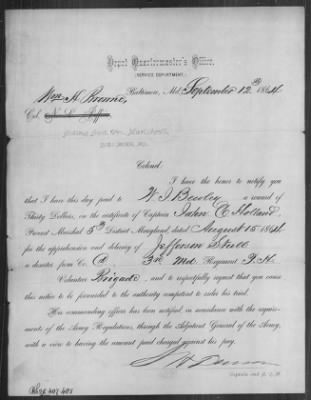 Depot Quartermaster's Office,
(SERVICE DEPARTMENT,)
Baltimore, Md. September 12th 1864
Wm H. Browne,
Col. N. L. Jeffries
Colonel:
I have the honor to notify you
that I have this day paid to W. J. Bewley a reward of
Thirty Dollars, on the certificate of Captain John C Holland,
Provost Marshal 5th District Maryland, dated August 15 1864
for the apprehension and delivery of Jefferson
a deserter from Co. 3rd Md. Regiment P. H.
Volunteer Brigade and to respectfully request that you cause
this notice to be forwarded to the authority competent to order his trial.
His commanding officer has been notified in accordance with the require-
ments of the Army Regulations, through the Adjutant General of the Army,
with a view to having the amount paid charged against his pay.
Captain and A. Q. M.